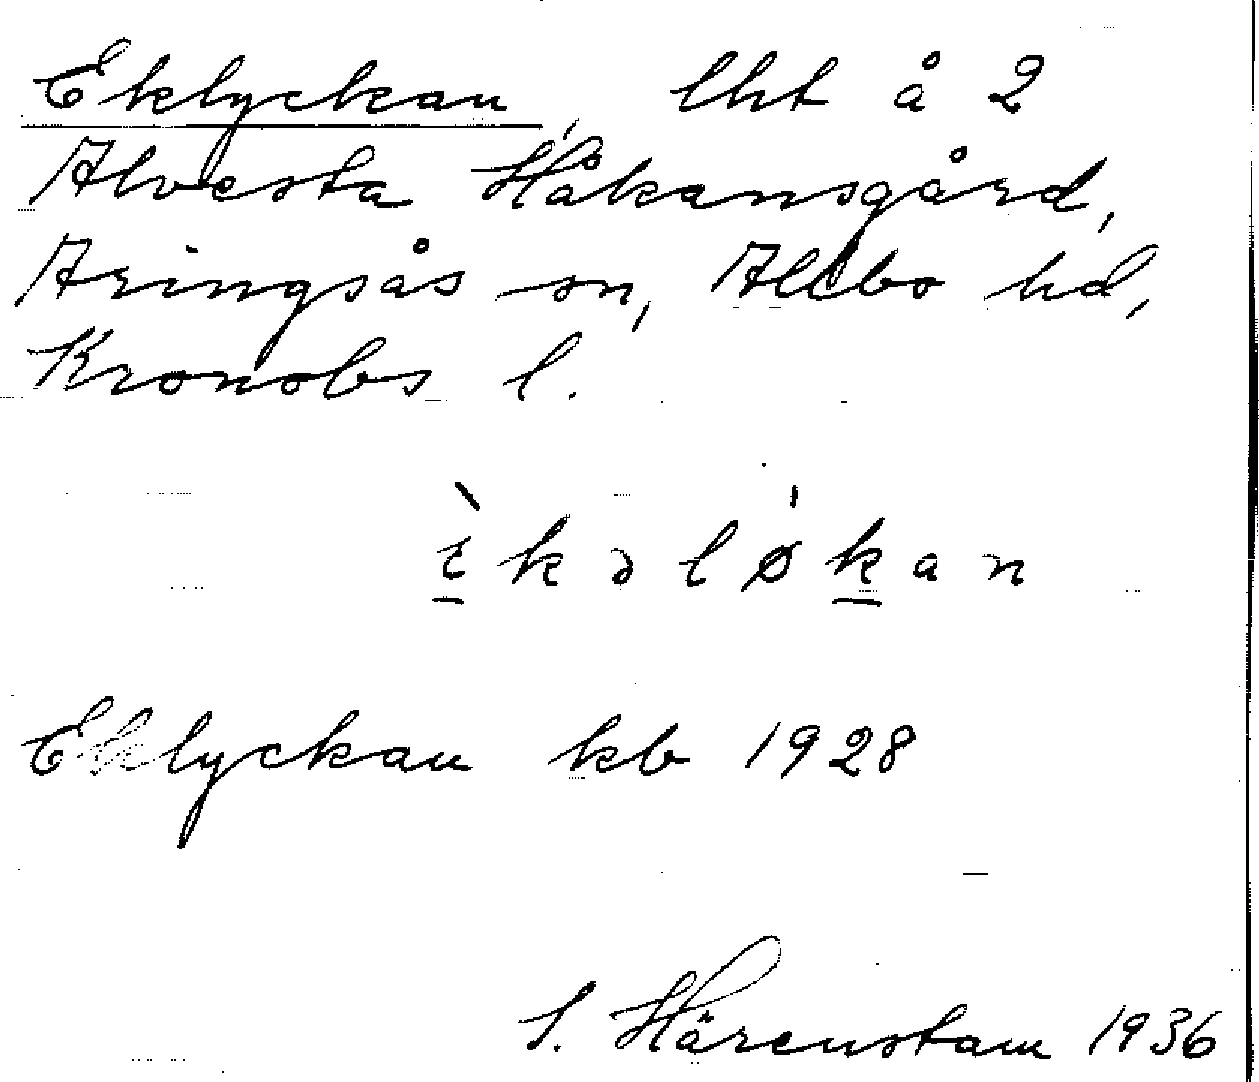 Eklyckan, lht å 2
Alvesta Håkansgård,
Aringsås sn, Allbo hd,
Kronobs l.
ì̠kəlø̍k̠an
Eklyckan kb 1928
S. Härenstam 1936